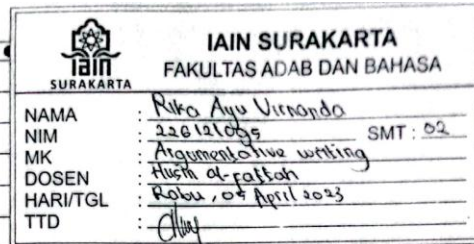 iain
SURAKARTA
IAIN SURAKARTA
FAKULTAS ADAB DAN BAHASA
NAMA : Rika Ayu Virnanda
NIM : 226121095 SMT : 02
MK : Argumentative writing
DOSEN : Husin al-fattah
HARI/TGL : Rabu, 05 April 2023
TTD :